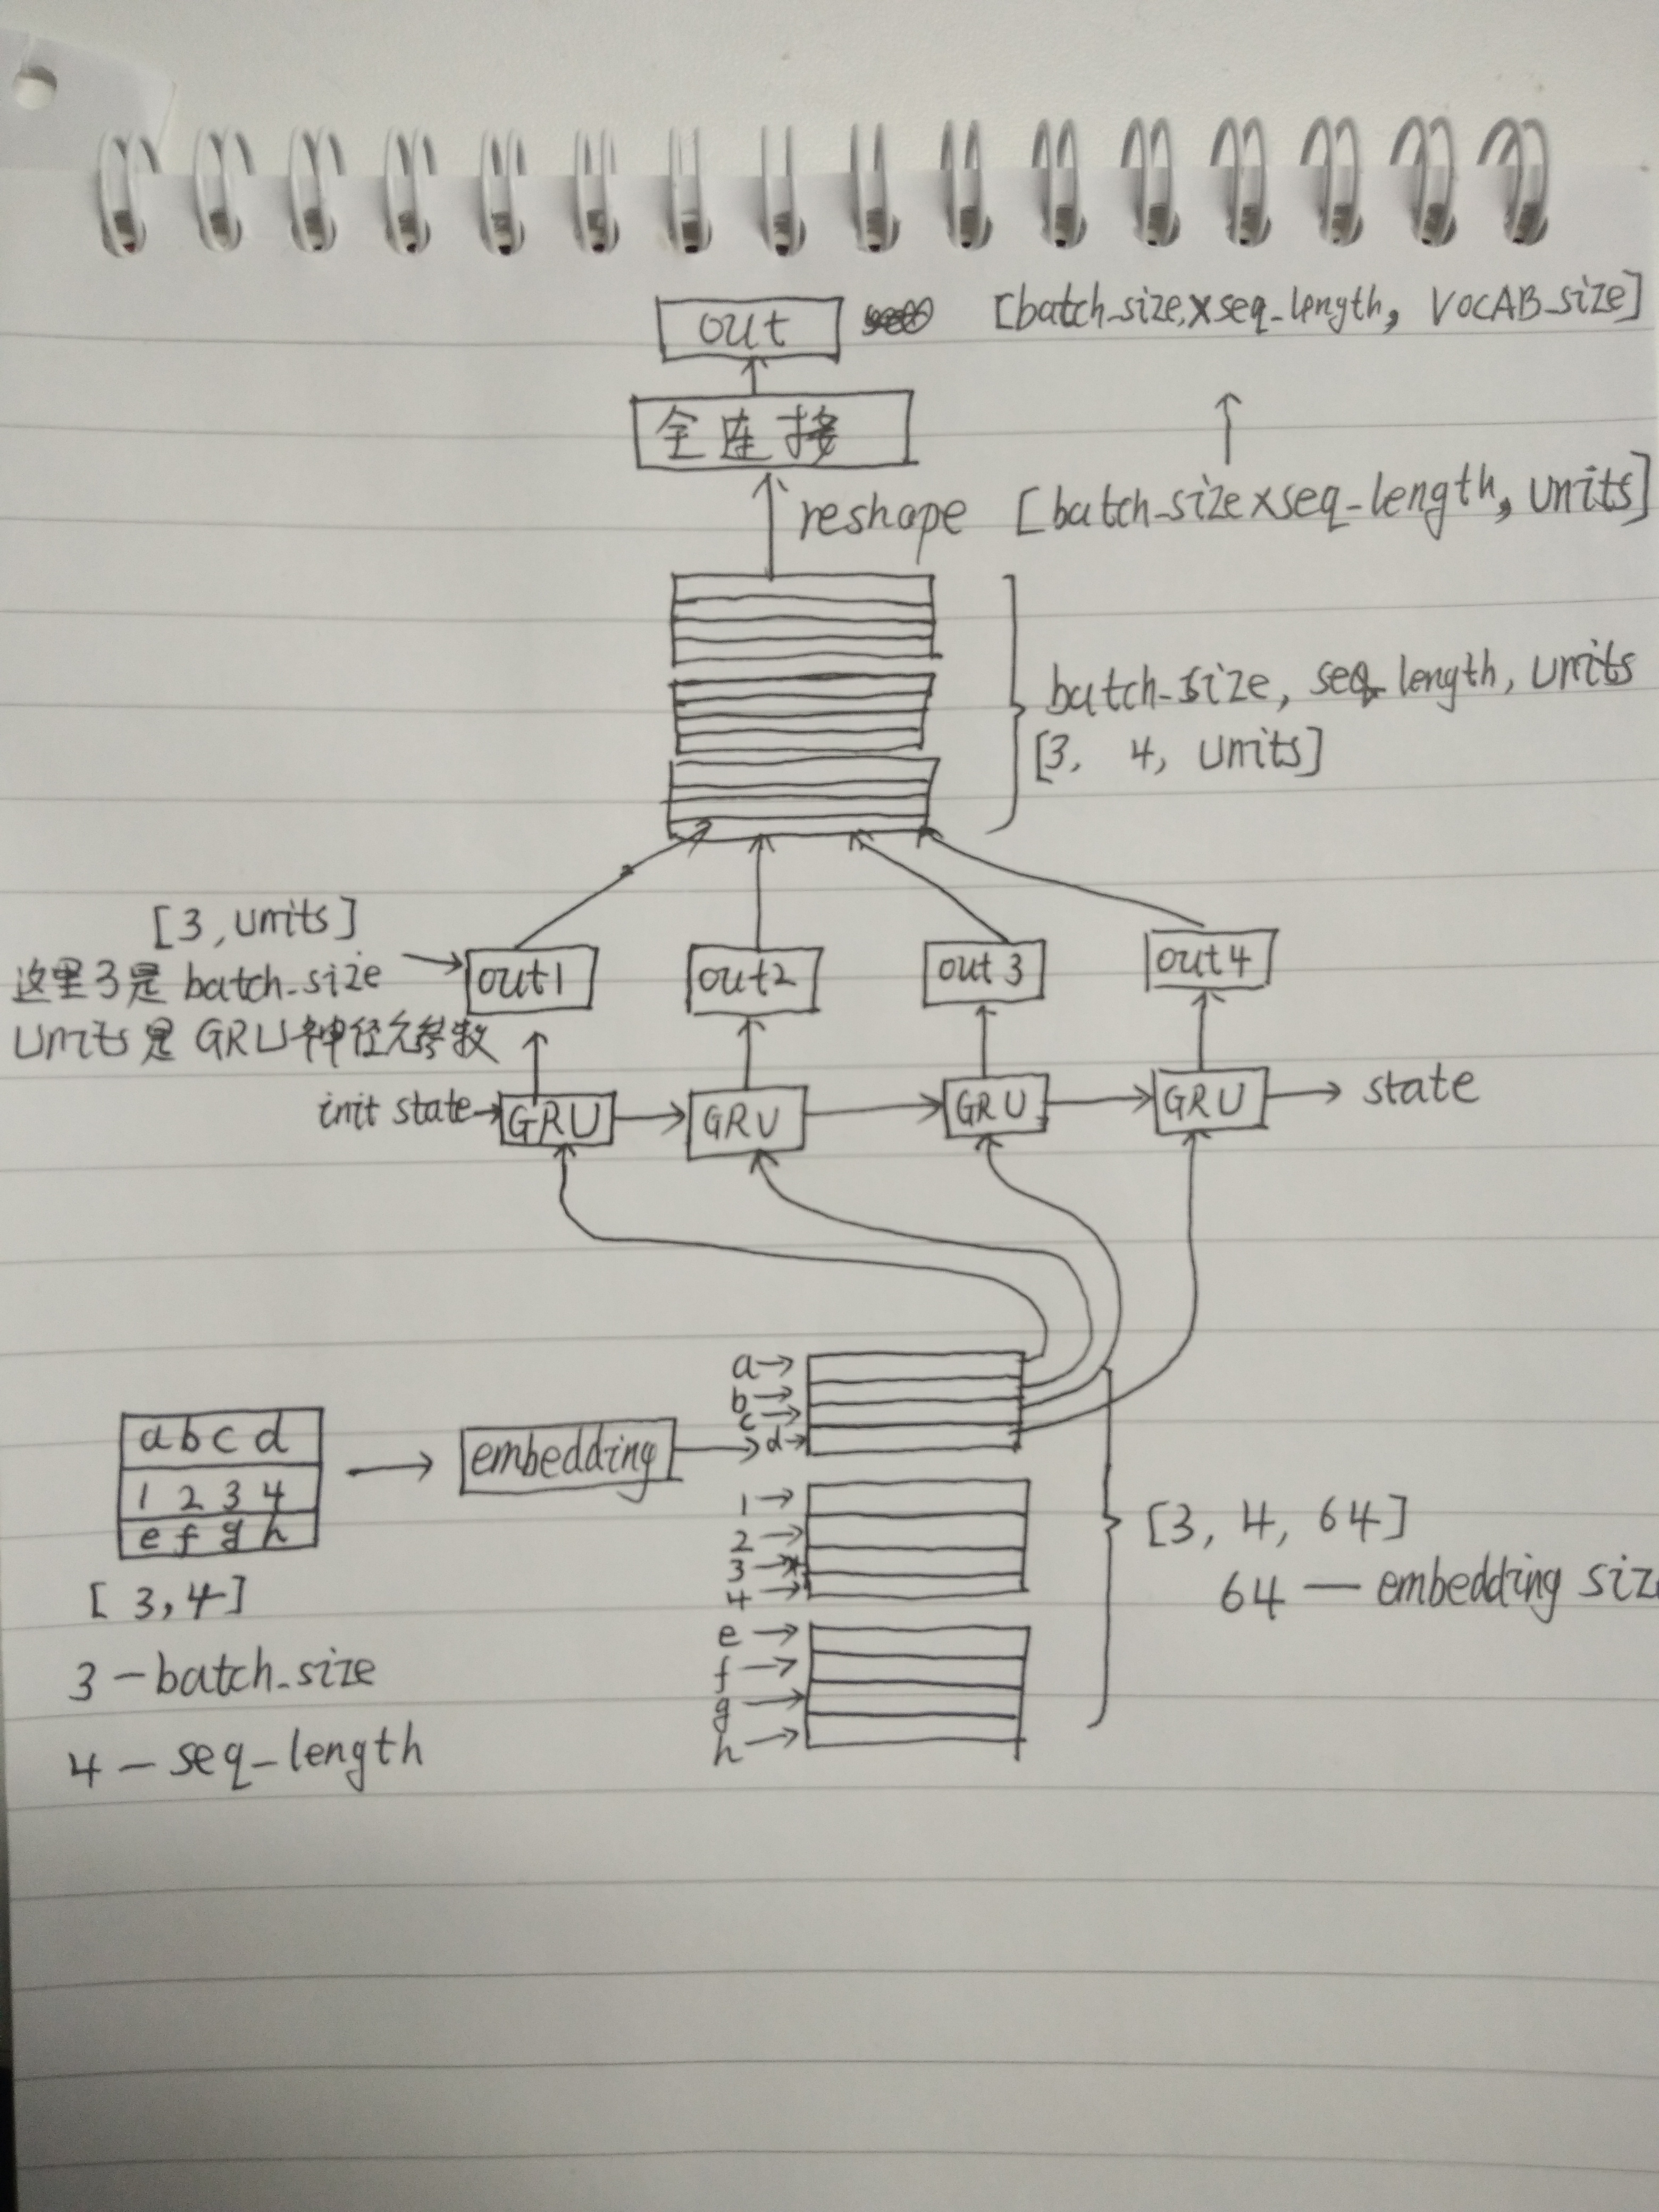 out [batch_size×seq_length, VOCAB_size]
全连接
reshape [batch_size×seq_length, units]
batch_size, seq_length, units
[3, 4, units]
[3, units]
这里3是 batch_size
units是 GRU神经元参数
out1 out2 out3 out4
init state GRU GRU GRU GRU state
a
b
c
d
a b c d
1 2 3 4
e f g h
embedding
1
2
3
4
[3, 4, 64]
64 — embedding siz
[3,4]
e
f
g
h
3 — batch_size
4 — seq_length